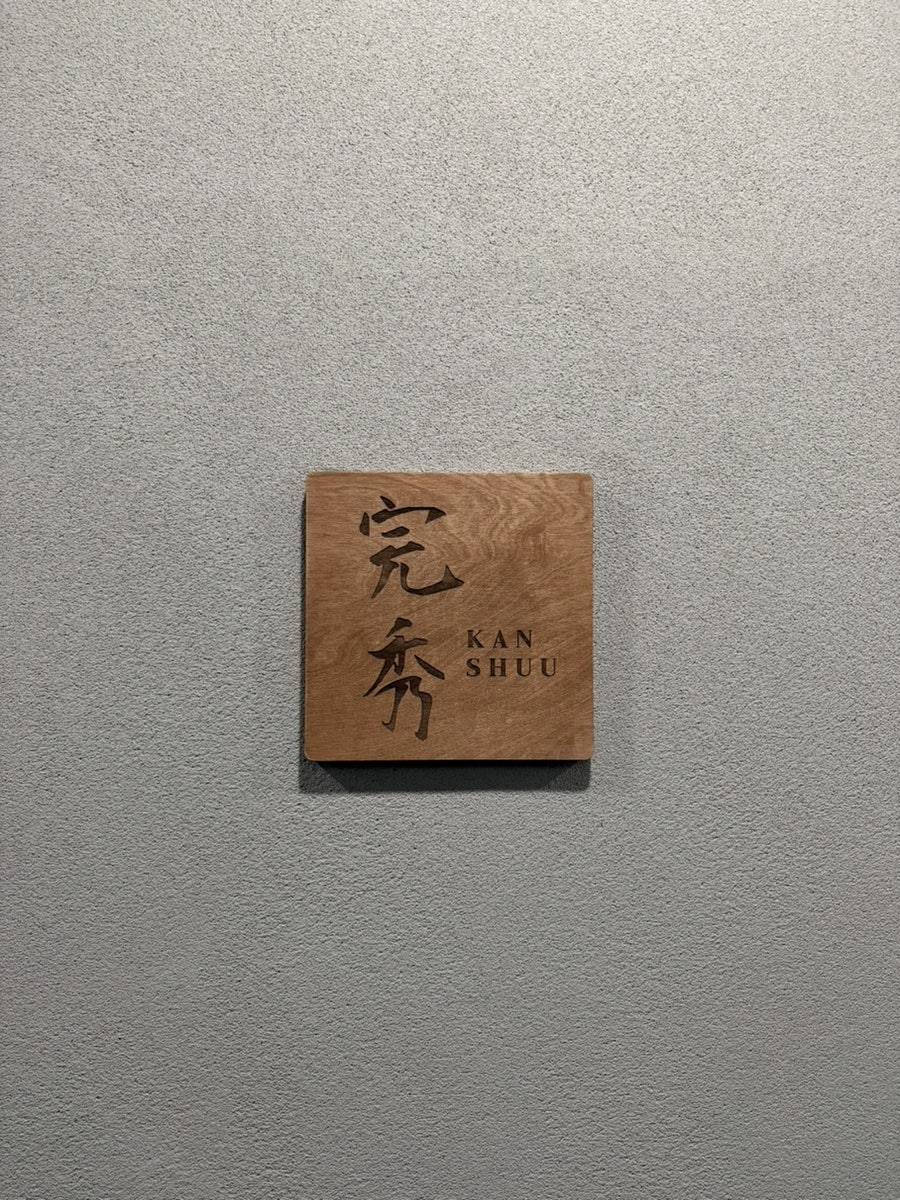 完秀
KAN
SHUU